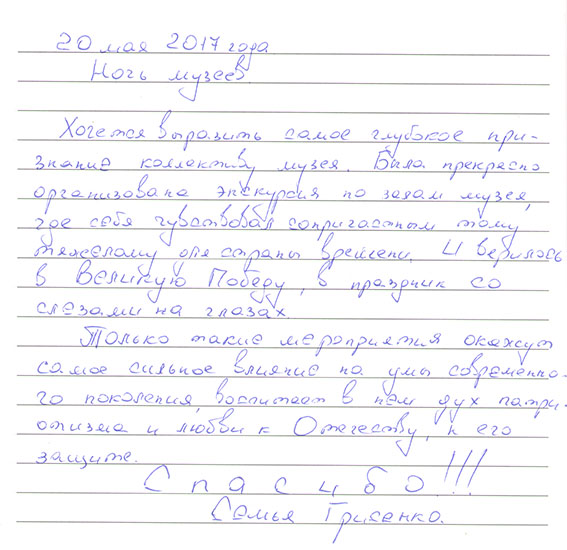 20 мая 2017 года
Ночь музеев.
Хочется выразить самое глубокое при-
знание коллективу музея. Была прекрасно
организована экскурсия по залам музея,
где себя чувствовал сопричастным тому
тяжелому для страны времени. И верилось
в Великую Победу, в праздник со
слезами на глазах.
Только такие мероприятия окажут
самое сильное влияние на умы современно-
го поколения, воспитает в нем дух патри-
отизма и любви к Отечеству, к его
защите.
Спасибо!!!
Семья Грисенко.